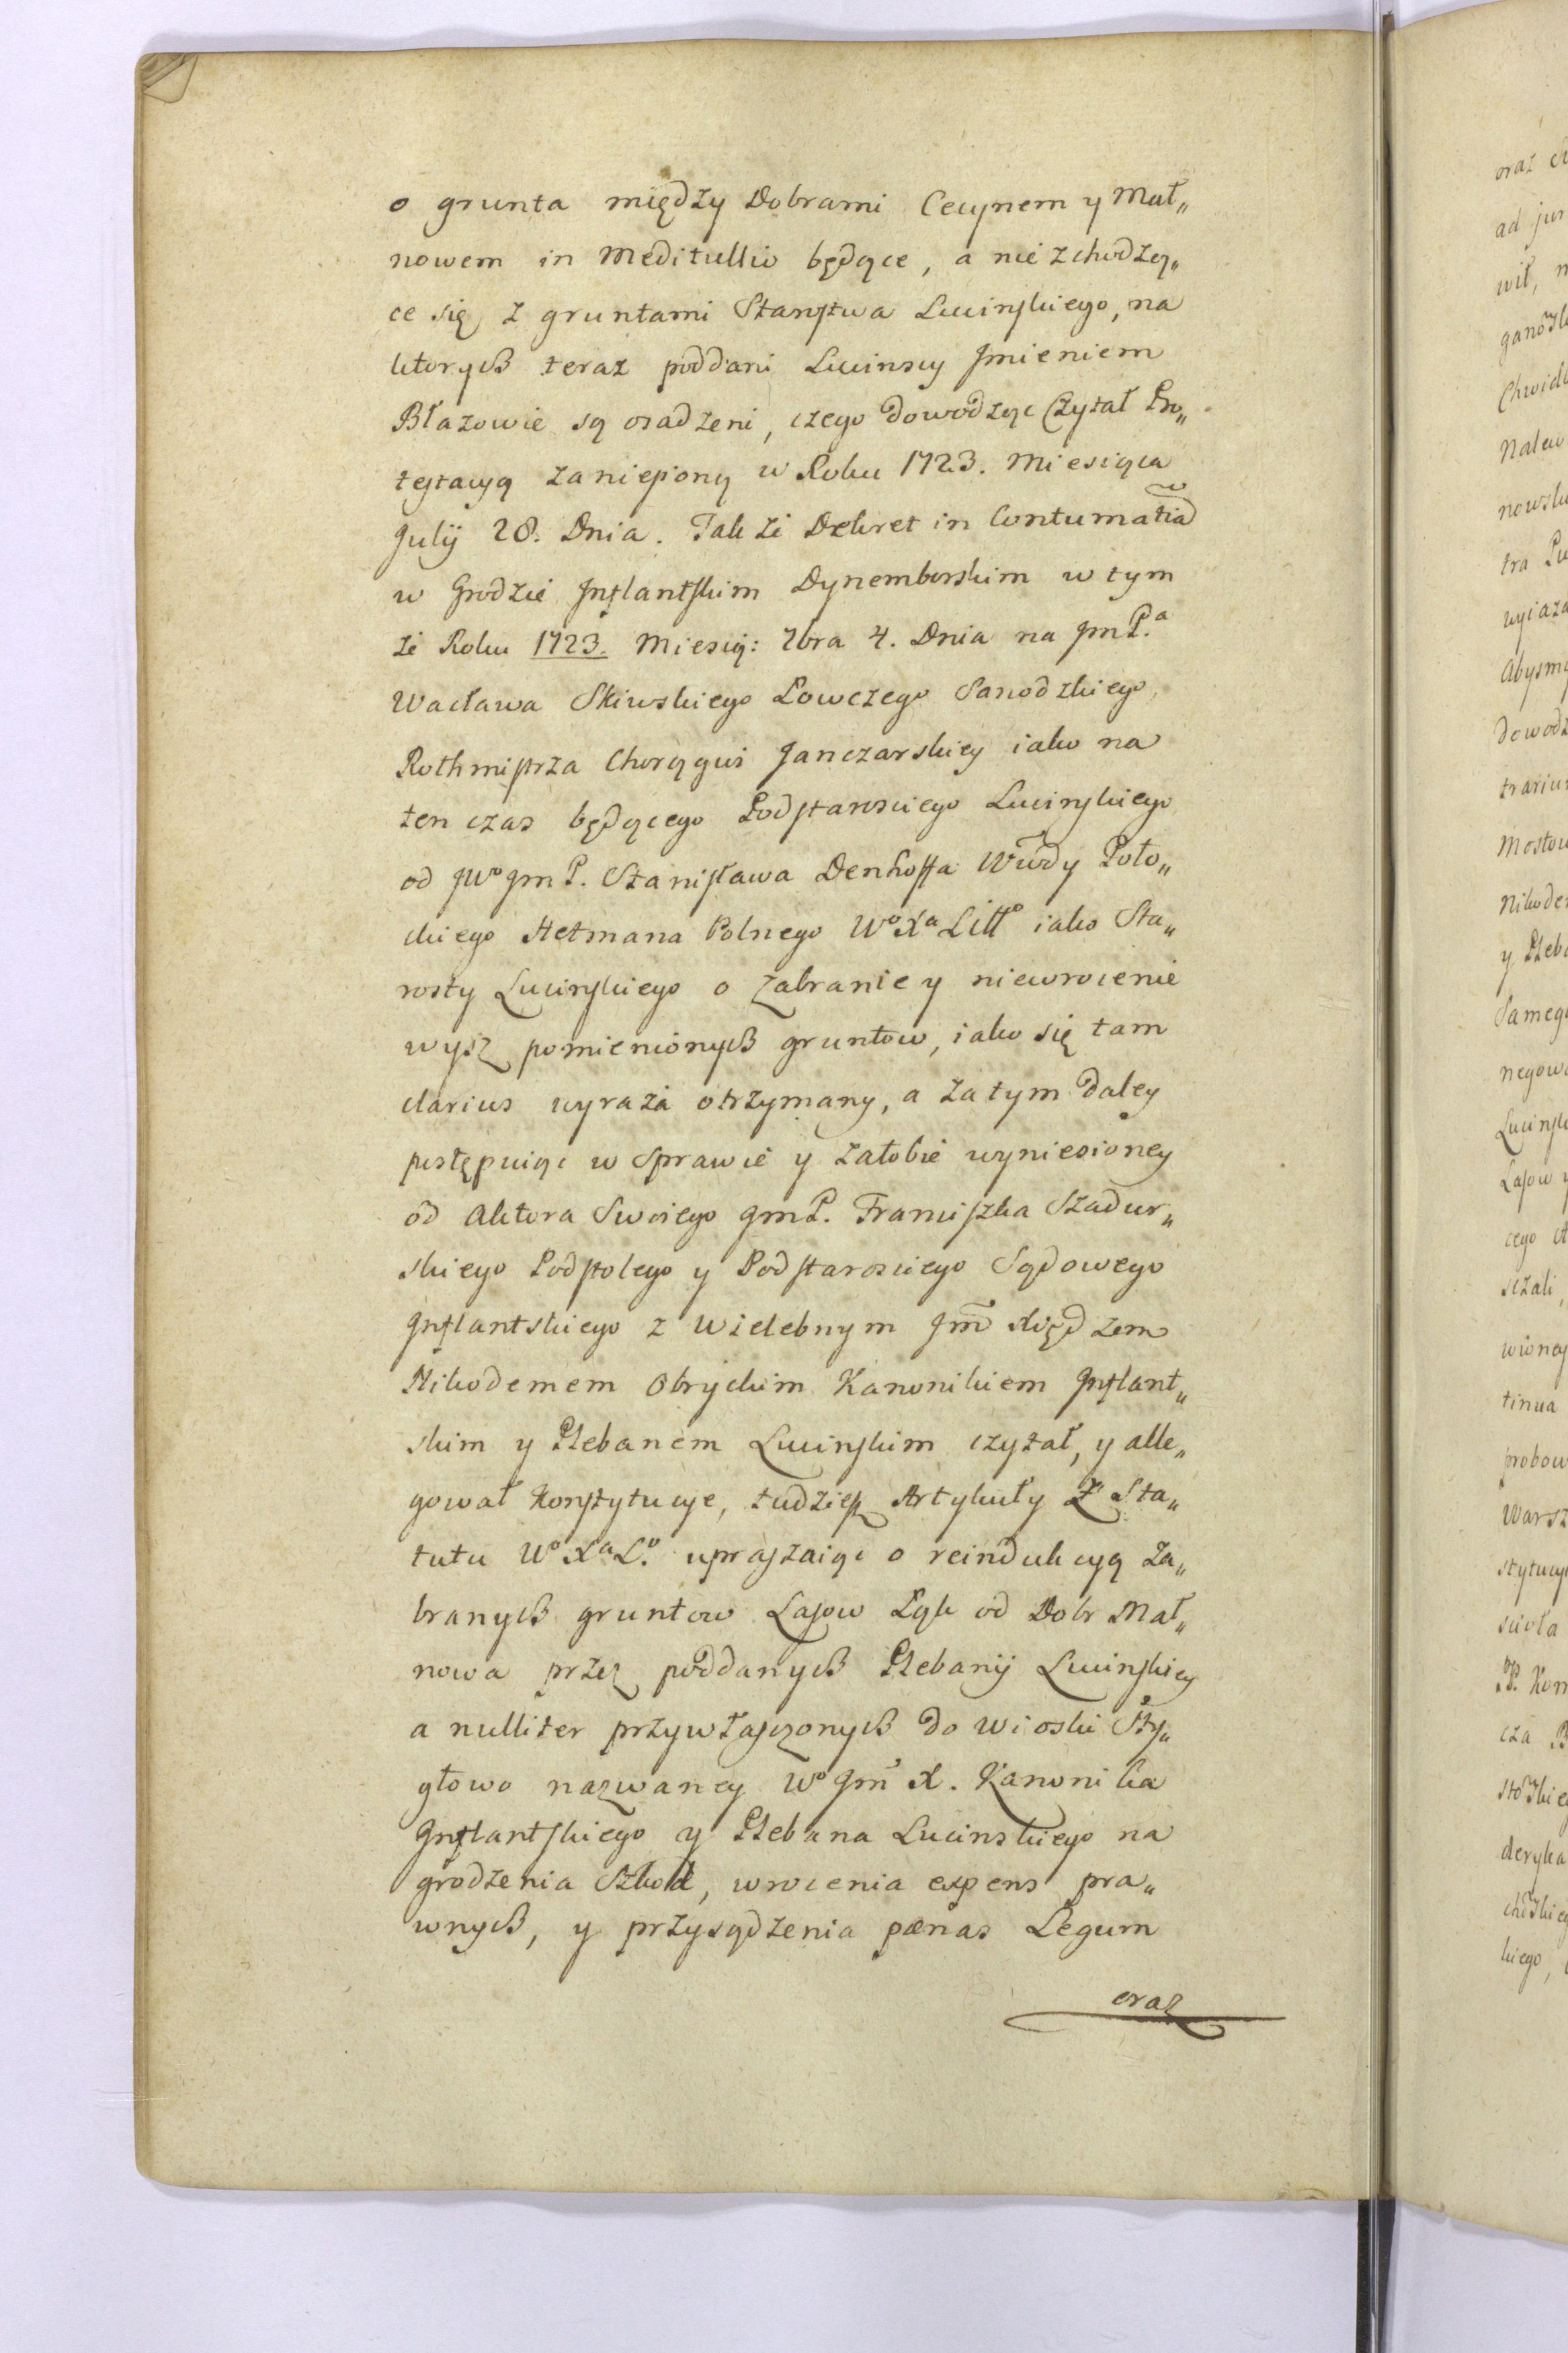 o grunta między Dobrami Cecynem y Mał„
nowem in meditullio będące, a nie zchodzą„
ce się z gruntami Starstwa Lucinskiego, na
ktorych teraz poddani Lucinscy Jmieniem
Błazowie są osadzeni, czego dowodząc Czytał Pro„
testacyą zaniesioną w Roku 1723. Miesiąca
July 28. Dnia. Tak że Dekret in Contumatia
w Grodzie Inflantskim Dynemborskim w tym
że Roku 1723. Miesią: 7bra 4. Dnia na Jm P.a
Wacława Skiwskiego Łowczego Sanodzkiego,
Rothmistrza Chorągwi Janczarskiey iako na
ten czas będącego Podstarosciego Lucinskiego
od JWo Jm P. Stanisława Denhoffa Wwdy Poło„
ckiego Hetmana Polnego Wo Xa Litto iako Sta„
rosty Lucinskiego o zabranie y niewrocenie
wysz pomienionych gruntow, iako się tam
clarius wyraża otrzymany, a zatym daley
postępuiąc w Sprawie y żałobie wyniesioney
od Aktora Swoiego Jm P. Franciszka Szadur„
skiego Podstolego y Podstarosciego Sądowego
Inflantskiego z Wielebnym Jm Xiędzem
Nikodemem Obryckim Kanonikiem Inflant„
skim y Plebanem Lucinskim czytał, y alle„
gował Konstytucye, tudziesz Artykuły Z Sta„
tutu Wo Xa L.o upraszaiąc o reindukcyą za„
branych gruntow Lasow Łąk od Dobr Mał„
nowa przez poddanych Plebanij Lucinskiey
a nulliter przywłaszczonych do wioski Sty„
głowo nazwaney Wo Jm X. Kanonika
Inflantskiego y Plebana Lucinskiego na
grodzenia Szkod, wrocenia expens pra„
wnych, y przysądzenia pænas Legum
oraz